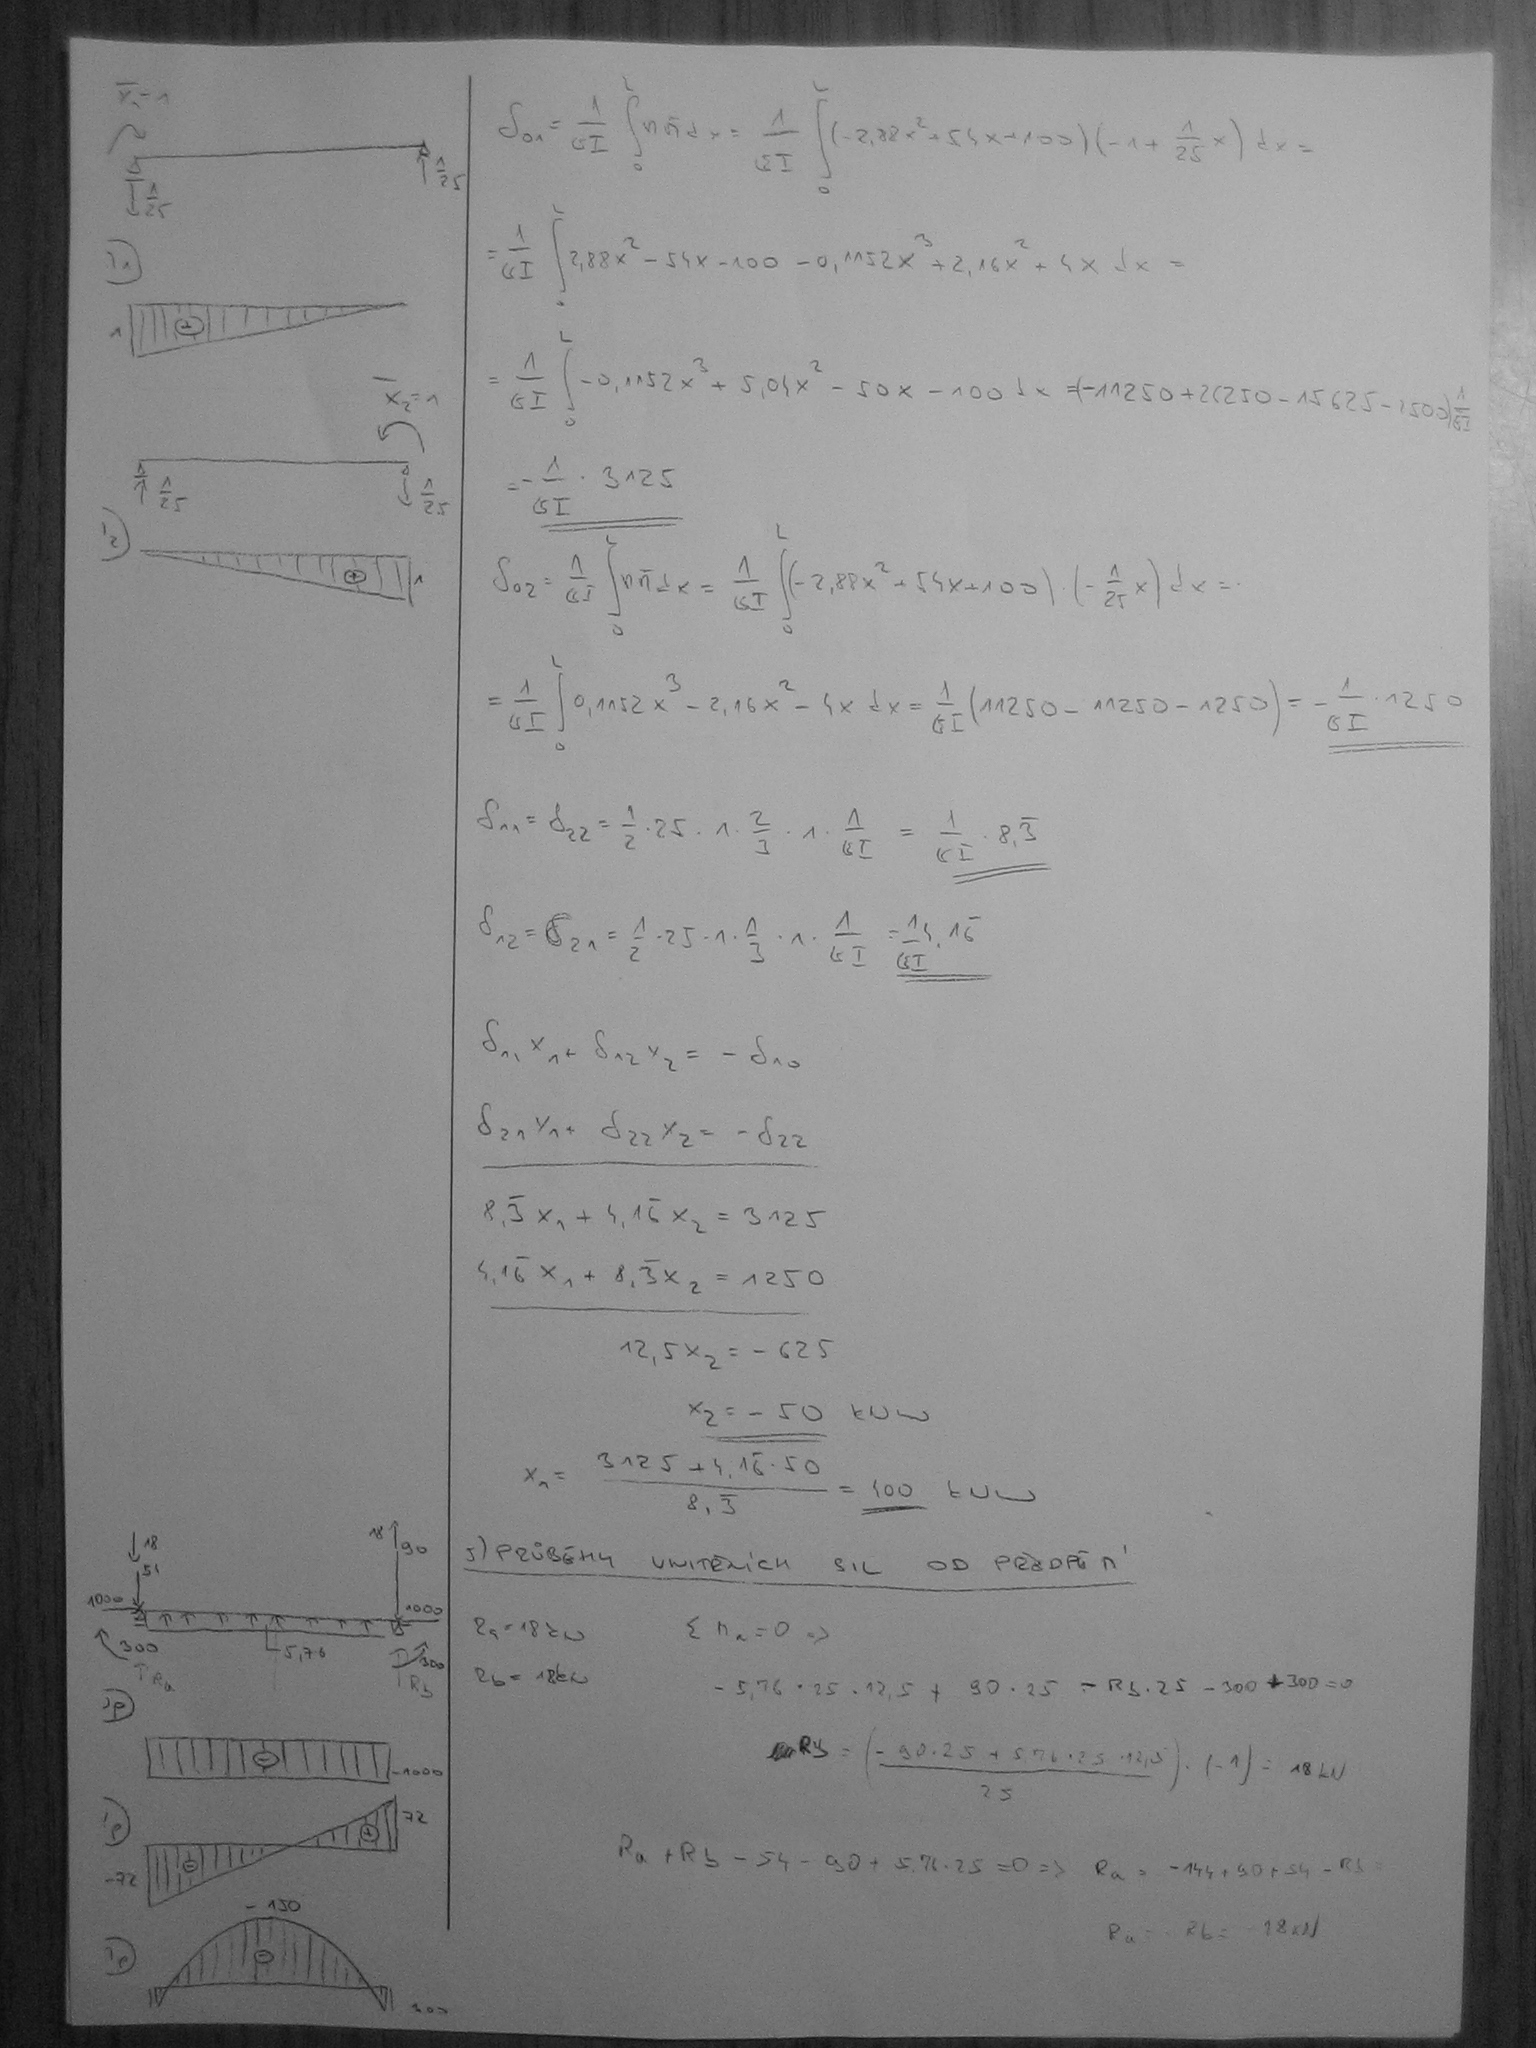 x̄₁=1
1/25
1/25
1
x̄₂=1
1/25
1/25
1
δ₀₁ = 1/EI ∫₀ᴸ M M̄ dx = 1/EI ∫₀ᴸ (-2,88x²+54x+100)(-1+1/25 x) dx =
= 1/EI ∫₀ᴸ 2,88x² - 54x - 100 - 0,1152x³ + 2,16x² + 4x dx =
= 1/EI ∫₀ᴸ -0,1152x³ + 5,04x² - 50x - 100 dx = (-11250+26250-15625-2500) 1/EI
= - 1/EI · 3125
δ₀₂ = 1/EI ∫₀ᴸ M M̄ dx = 1/EI ∫₀ᴸ (-2,88x²+54x+100) · (-1/25 x) dx =
= 1/EI ∫₀ᴸ 0,1152x³ - 2,16x² - 4x dx = 1/EI (11250 - 11250 - 1250) = - 1/EI · 1250
δ₁₁ = δ₂₂ = 1/2 · 25 · 1 · 2/3 · 1 · 1/EI = 1/EI · 8,3̄
δ₁₂ = δ₂₁ = 1/2 · 25 · 1 · 1/3 · 1 · 1/EI = 1/EI 4,16̄
δ₁₁x₁ + δ₁₂x₂ = - δ₁₀
δ₂₁x₁ + δ₂₂x₂ = - δ₂₂
8,3̄x₁ + 4,16̄x₂ = 3125
4,16̄x₁ + 8,3̄x₂ = 1250
12,5x₂ = - 625
x₂ = - 50 kNm
x₁ = (3125 + 4,16̄·50) / 8,3̄ = 400 kNm
5) PRŮBĚHY VNITŘNÍCH SIL OD PŘEDPĚTÍ
18
54
18
90
1000
1000
300
5,76
300
Ra
Rb
Ra = 18 kN
Σ Ma = 0 =>
Rb = 18 kN
- 5,76 · 25 · 12,5 + 90 · 25 - Rb · 25 - 300 + 300 = 0
Rb = ((- 90·25 + 5,76·25·12,5) / 25) · (-1) = 18 kN
Ra + Rb - 54 - 90 + 5,76·25 = 0 => Ra = -144+90+54 - Rb =
Ra = - Rb = - 18 kN
-1000
72
-72
- 150
300